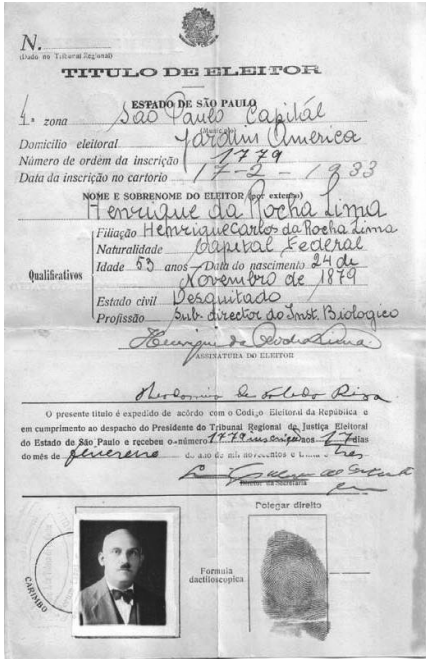 N.
(Dado no Tribunal Regional)
TITULO DE ELEITOR
ESTADO DE SÃO PAULO
4.ª zona São Paulo Capitál
(Municipio)
Domicilio eleitoral Jardim America
Número de ordem da inscrição 1779
Data da inscrição no cartorio 17-2-1933
NOME E SOBRENOME DO ELEITOR (por extenso)
Henrique da Rocha Lima
Qualificativos
Filiação Henrique Carlos da Rocha Lima
Naturalidade Capital Federal
Idade 53 anos - Data do nascimento 24 de
Novembro de 1879
Estado civil Desquitado
Profissão Sub. director do Inst. Biologico
Henrique da Rocha Lima
ASSINATURA DO ELEITOR
de Toledo Piza
O presente titulo é expedido de acôrdo com o Codigo Eleitoral da República e
em cumprimento ao despacho do Presidente do Tribunal Regional de Justiça Eleitoral
do Estado de São Paulo e recebeu o número 1779 inscrição aos 17 dias
do mês de fevereiro do ano de mil novecentos e trinta e tres
Diretor da Secretaria
Polegar direito
CARIMBO
Formula
dactiloscopica